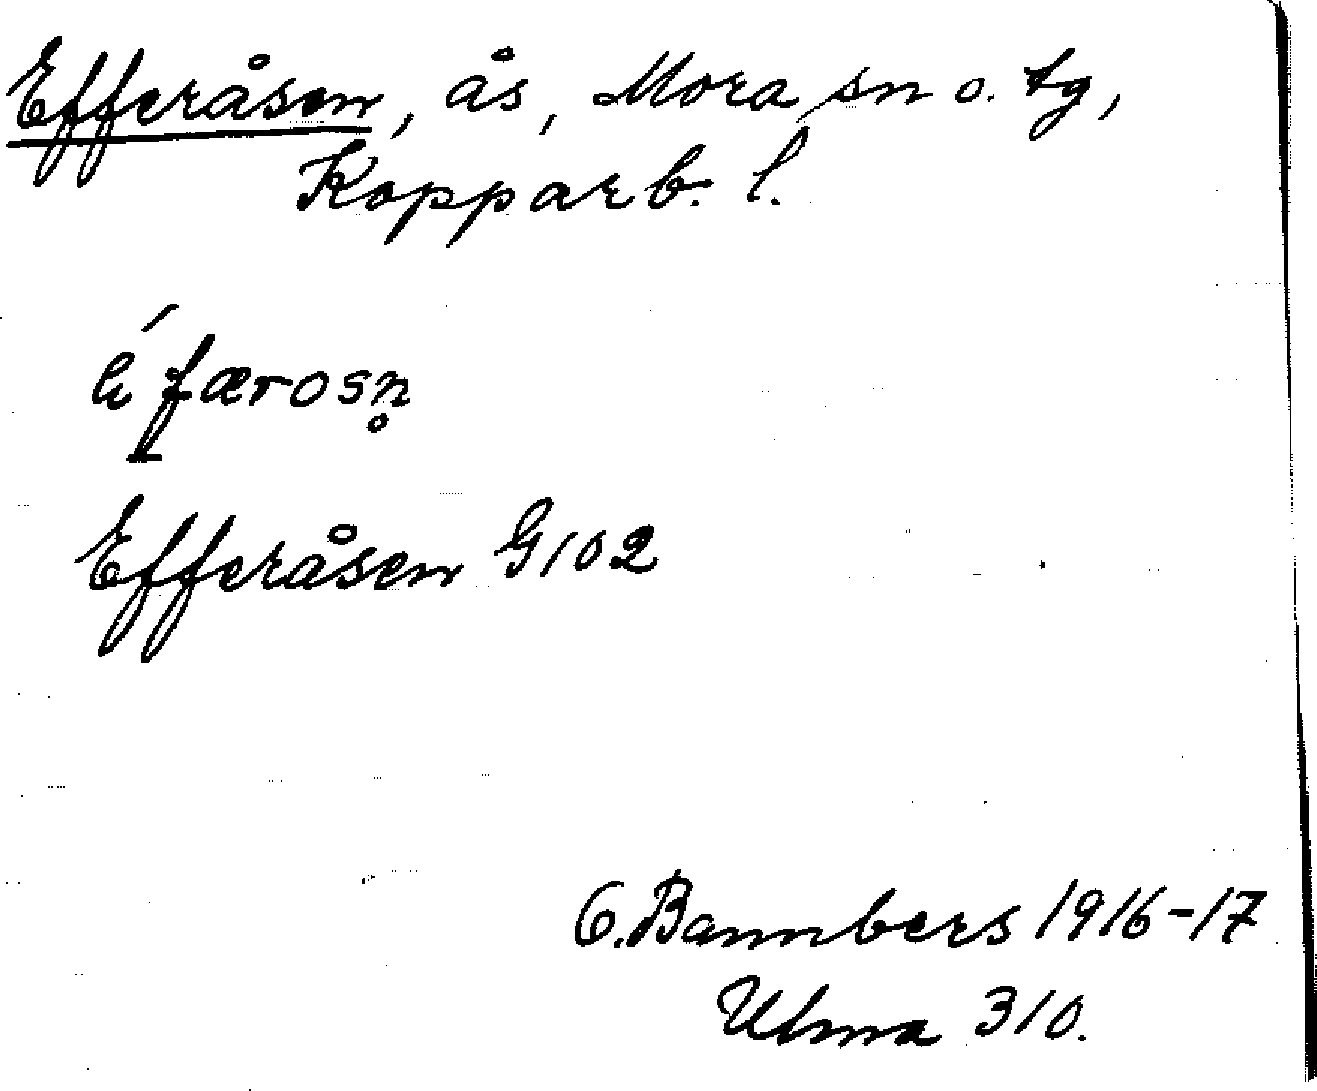 Efferåsen, ås, Mora sn o. tg,
Kopparb. l.
é færosn̥
Efferåsen G102
O. Bannbers 1916-17
Ulma 310.